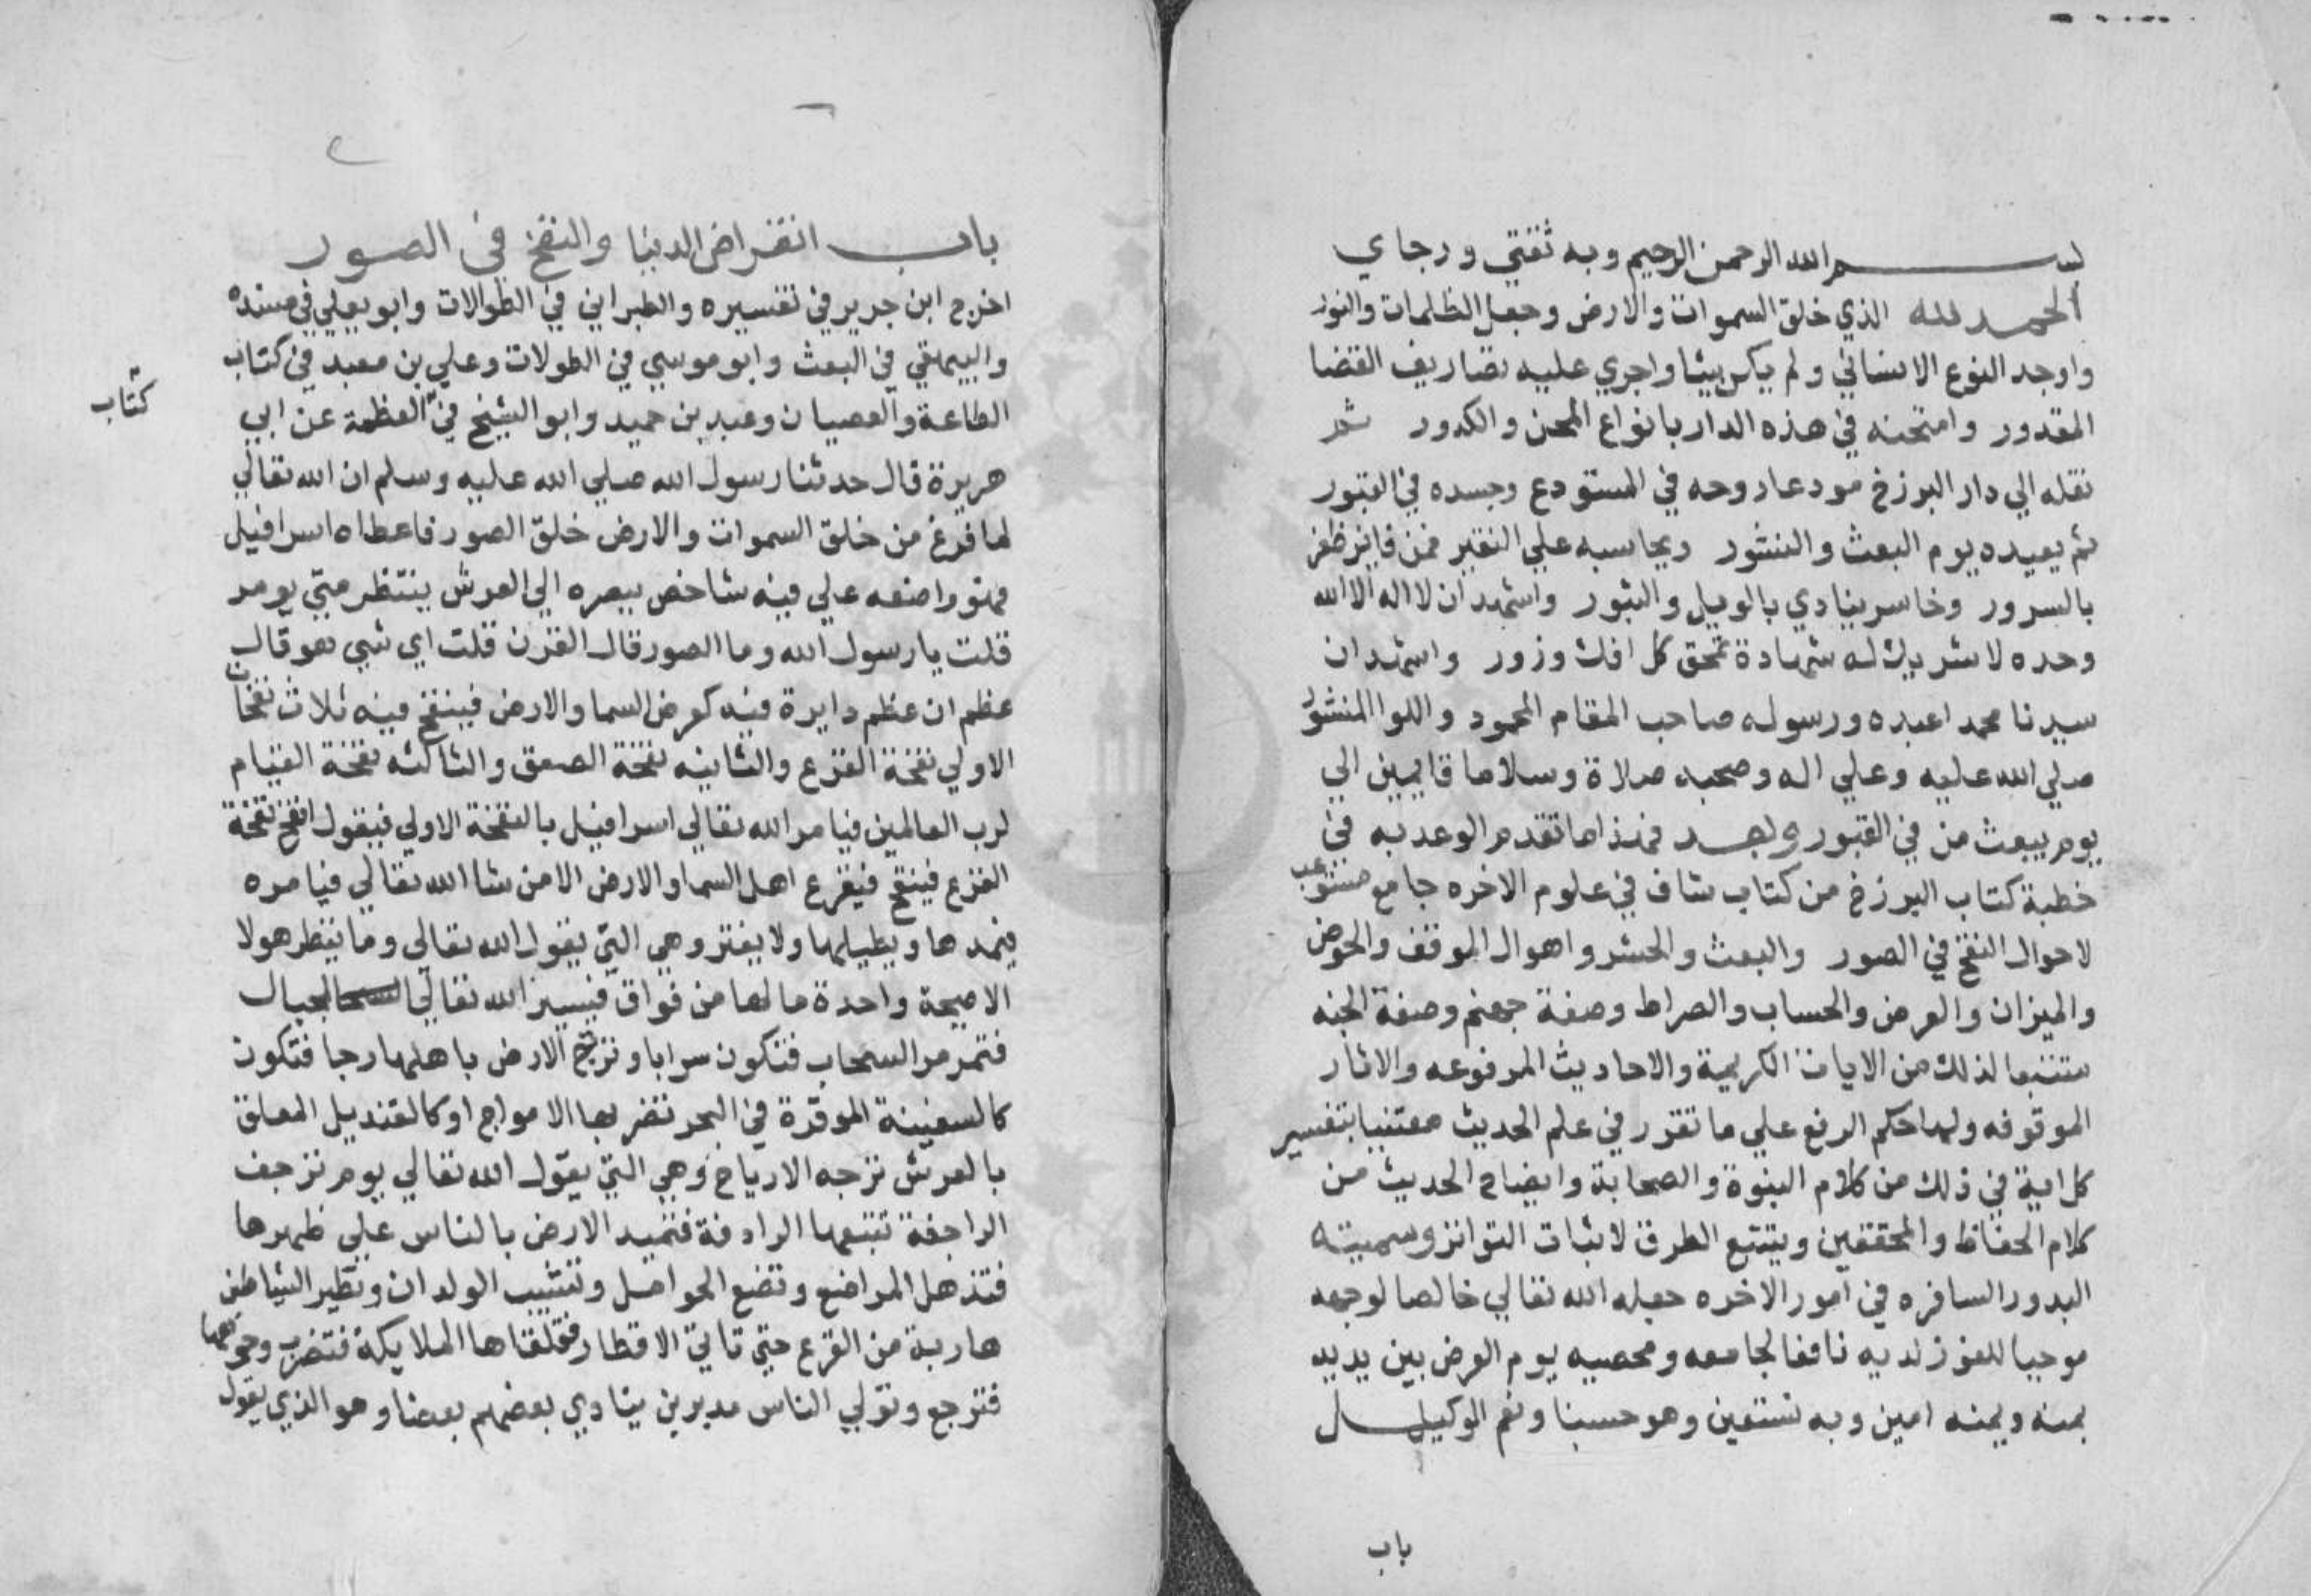 بسم الله الرحمن الرحيم وبه ثقتي ورجاي
الحمد لله الذي خلق السموات والارض وجعل الظلمات والنور
واوجد النوع الانساني ولم يكن شيا واجري عليه تصاريف القضا
المقدور وامتحنه في هذه الدار بانواع المحن والكدور ثم
نقله الي دار البرزخ مودعا روحه في المستودع وجسده في القبور
ثم يعيده يوم البعث والنشور ويحاسبه علي النقير فمن فايز ظفر
بالسرور وخاسر ينادي بالويل والثبور واشهد ان لا اله الا الله
وحده لا شريك له شهادة تمحق كل افك وزور واشهد ان
سيدنا محمدا عبده ورسوله صاحب المقام المحمود واللوا المنشور
صلي الله عليه وعلي اله وصحبه صلاة وسلاما قايمين الي
يوم يبعث من في القبور وبعد فهذا ما تقدم الوعد به في
خطبة كتاب البرزخ من كتاب شاف في علوم الاخره جامع مستوعب
لاحوال النفخ في الصور والبعث والحشر واهوال الموقف والحوض
والميزان والعرض والحساب والصراط وصفة جهنم وصفة الجنه
متتبعا لذلك من الايات الكريمة والاحاديث المرفوعه والاثار
الموقوفه ولها حكم الرفع علي ما تقرر في علم الحديث معتنيا بتفسير
كل اية في ذلك من كلام النبوة والصحابة وايضاح الحديث من
كلام الحفاظ والمحققين وبتتبع الطرق لاثبات التواتر وسميته
البدور السافره في امور الاخره جعله الله تعالي خالصا لوجهه
موجبا للفوز لديه نافعا لجامعه ومحصيه يوم العرض بين يديه
بمنه ويمنه امين وبه نستعين وهو حسبنا ونعم الوكيل
باب
باب انقراض الدنيا والنفخ في الصور
اخرج ابن جرير في تفسيره والطبراني في الطوالات وابو يعلي في مسنده
والبيهقي في البعث وابو موسي في الطولات وعلي بن معبد في كتاب
الطاعة والعصيان وعبد بن حميد وابو الشيخ في العظمة عن ابي
كتاب
هريرة قال حدثنا رسول الله صلي الله عليه وسلم ان الله تعالي
لما فرغ من خلق السموات والارض خلق الصور فاعطاه اسرافيل
فهو واضعه علي فيه شاخص ببصره الي العرش ينتظر متي يومر
قلت يا رسول الله وما الصور قال القرن قلت اي شي هو قال
عظم ان عظم دايرة فيه كعرض السما والارض فينفخ فيه ثلاث نفخات
الاولي نفخة الفزع والثانيه نفخة الصعق والثالثه نفخة القيام
لرب العالمين فيامر الله تعالي اسرافيل بالنفخة الاولي فيقول انفخ نفخة
الفزع فينفخ فيفزع اهل السما والارض الا من شا الله تعالي فيامره
فيمدها ويطيلها ولا يفتر وهي التي يقول الله تعالي وما ينظر هولا
الا صيحة واحدة ما لها من فواق فيسير الله تعالي الجبال
فتمر مر السحاب فتكون سرابا وترتج الارض باهلها رجا فتكون
كالسفينة الموقرة في البحر تضربها الامواج او كالقنديل المعلق
بالعرش ترجه الارياح وهي التي يقول الله تعالي يوم ترجف
الراجفة تتبعها الرادفة فتميد الارض بالناس علي ظهرها
فتذهل المراضع وتضع الحوامل وتشيب الولدان وتطير الشياطين
هاربة من الفزع حتي تاتي الاقطار فتلقاها الملايكة فتضرب وجوهها
فترجع وتولي الناس مدبرين ينادي بعضهم بعضا وهو الذي يقول